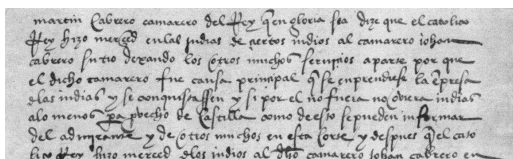 martin Cabrero camarero del Rey q̃ en gloria sea dize que el catolico
Rey hizo merçed en las indias de çiertos indios al camarero johan
cabrero su tio dexando los otros muchos serviçios aparte por que
el dicho camarero fue causa prinçipal q̃ se emprendiese la enpresa
de las indias y se conquistassen y si por el no fuera no oviera indias
alo menos pa provecho de Castilla como desto se pueden informar
del admirante y de otros muchos en esta corte y despues q̃l cato
lico Rey hizo merçed de los indios al dho camarero johan cabrero en